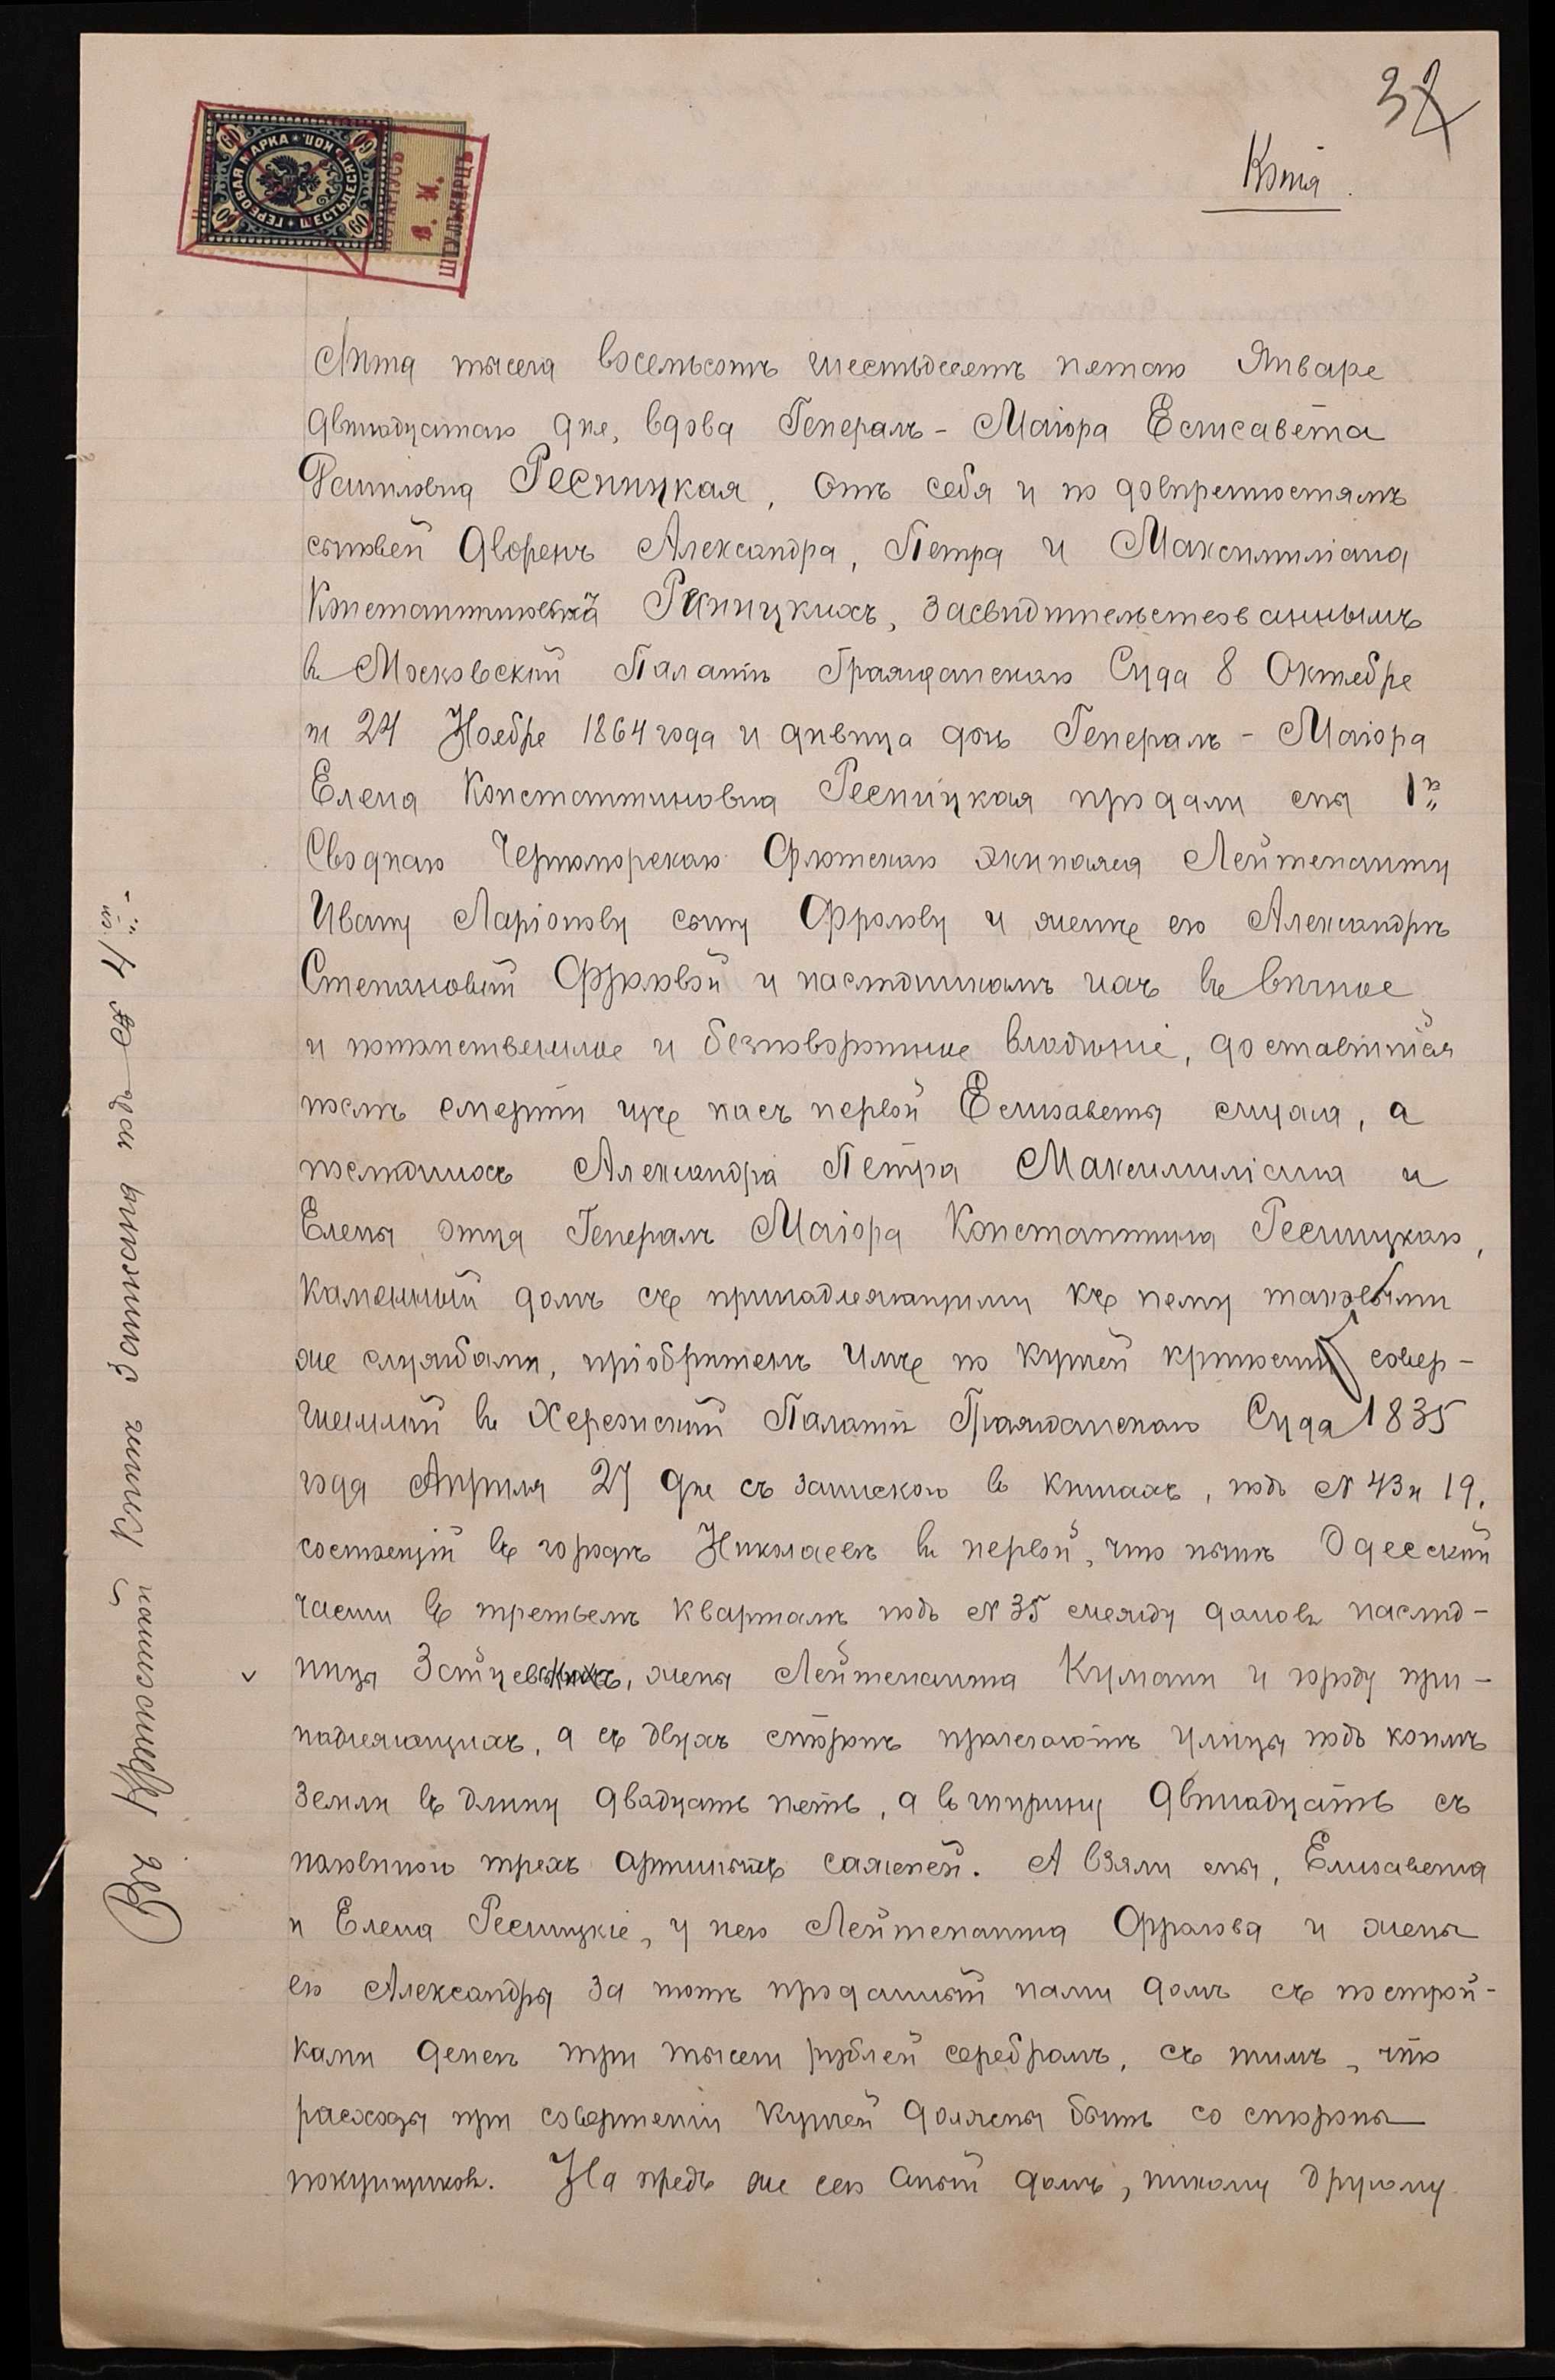 32
Копія.
ГЕРБОВАЯ МАРКА * ШЕСТЬДЕСЯТЪ КОП.
60 60 60 60
НОТАРІУСЪ
В. И.
ШТУЛЬКЕРЦЪ
Лѣта тысяча восемьсотъ шестьдесятъ пятаго Января
двѣнадцатаго дня, вдова Генералъ-Маіора Елисавета
Ресницкая, отъ себя и по довѣренностямъ
сыновей дворянъ Александра, Петра и Максимиліана
Константиновичей Ресницкихъ, засвидѣтельствованнымъ
въ Московской Палатѣ Гражданскаго Суда 8 Октября
и 24 Ноября 1864 года и дѣвица дочь Генералъ-Маіора
Елена Константиновна Ресницкая продали мы 1го
Своднаго Черноморскаго Флотскаго экипажа Лейтенанту
Ивану Ларіонову сыну Фролову и женѣ его Александрѣ
Степановой Фроловой и наслѣдникамъ ихъ въ вѣчное
и потомственное и безповоротное владѣніе, доставшійся
послѣ смерти изъ насъ первой Елизаветы мужа, а
послѣднихъ Александра Петра Максимиліана и
Елены отца Генералъ Маіора Константина Ресницкаго,
каменный домъ съ принадлежащими къ нему таковыми
же службами, пріобрѣтенъ имъ по купчей крѣпости совер-
шенной въ Херсонской Палатѣ Гражданскаго Суда 1835
года Апрѣля 27 дня съ запискою въ книгахъ, подъ № 43 и 19.
состоящій въ городѣ Николаевѣ въ первой, что нынѣ Одесской
части въ третьемъ кварталѣ подъ № 35 между домовъ наслѣд-
ницы жены Лейтенанта Кумани и городу при-
надлежащихъ, а съ двухъ сторонъ прилегаютъ улицы подъ коимъ
земли въ длину двадцать пять, а въ ширину двѣнадцать съ
половиною трехъ аршинныхъ саженей. А взяли мы, Елизавета
и Елена Ресницкіе, у него Лейтенанта Фролова и жены
его Александры за тотъ проданный нами домъ съ построй-
ками денегъ три тысячи рублей серебромъ, съ тѣмъ, что
расходы при совершеніи купчей должны быть со стороны
покупщиковъ. На предъ же сего оный домъ, никому другому